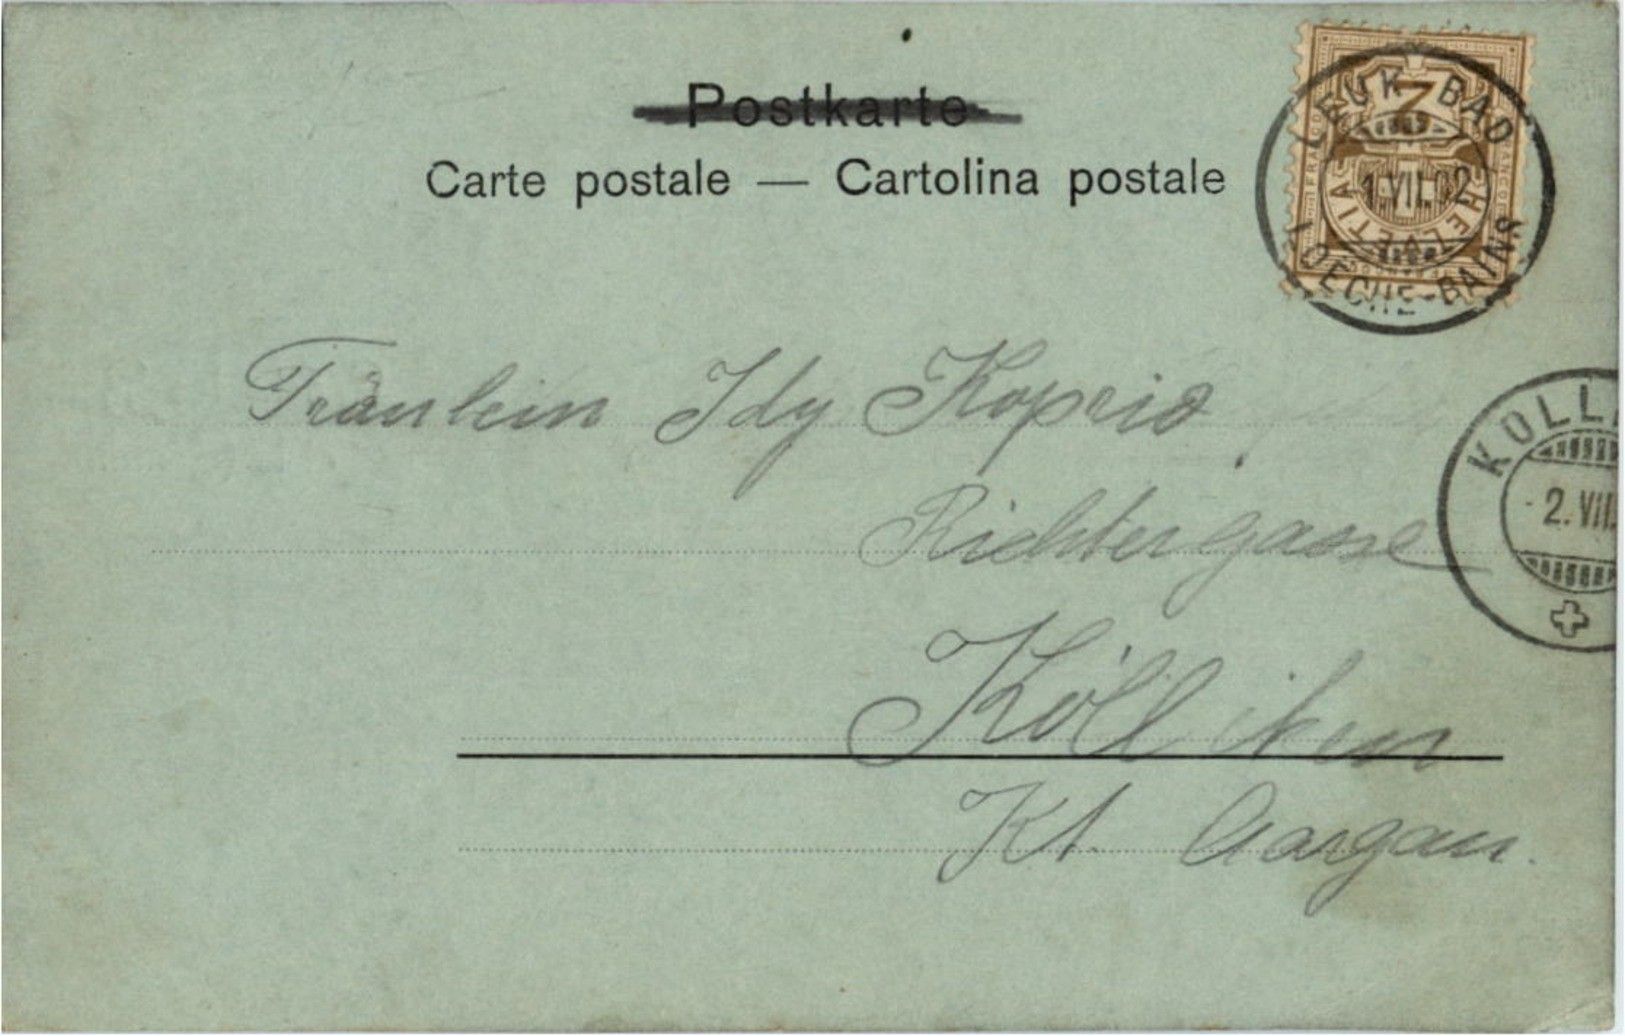 Postkarte
Carte postale — Cartolina postale
LEUK-BAD
1.VII.02
LOECHE-BAINS
HELVETIA
FRANCO
Fräulein Idy Koprio
KÖLLI
2. VII.
Richtergasse
Kölliken
Kt. Aargau.